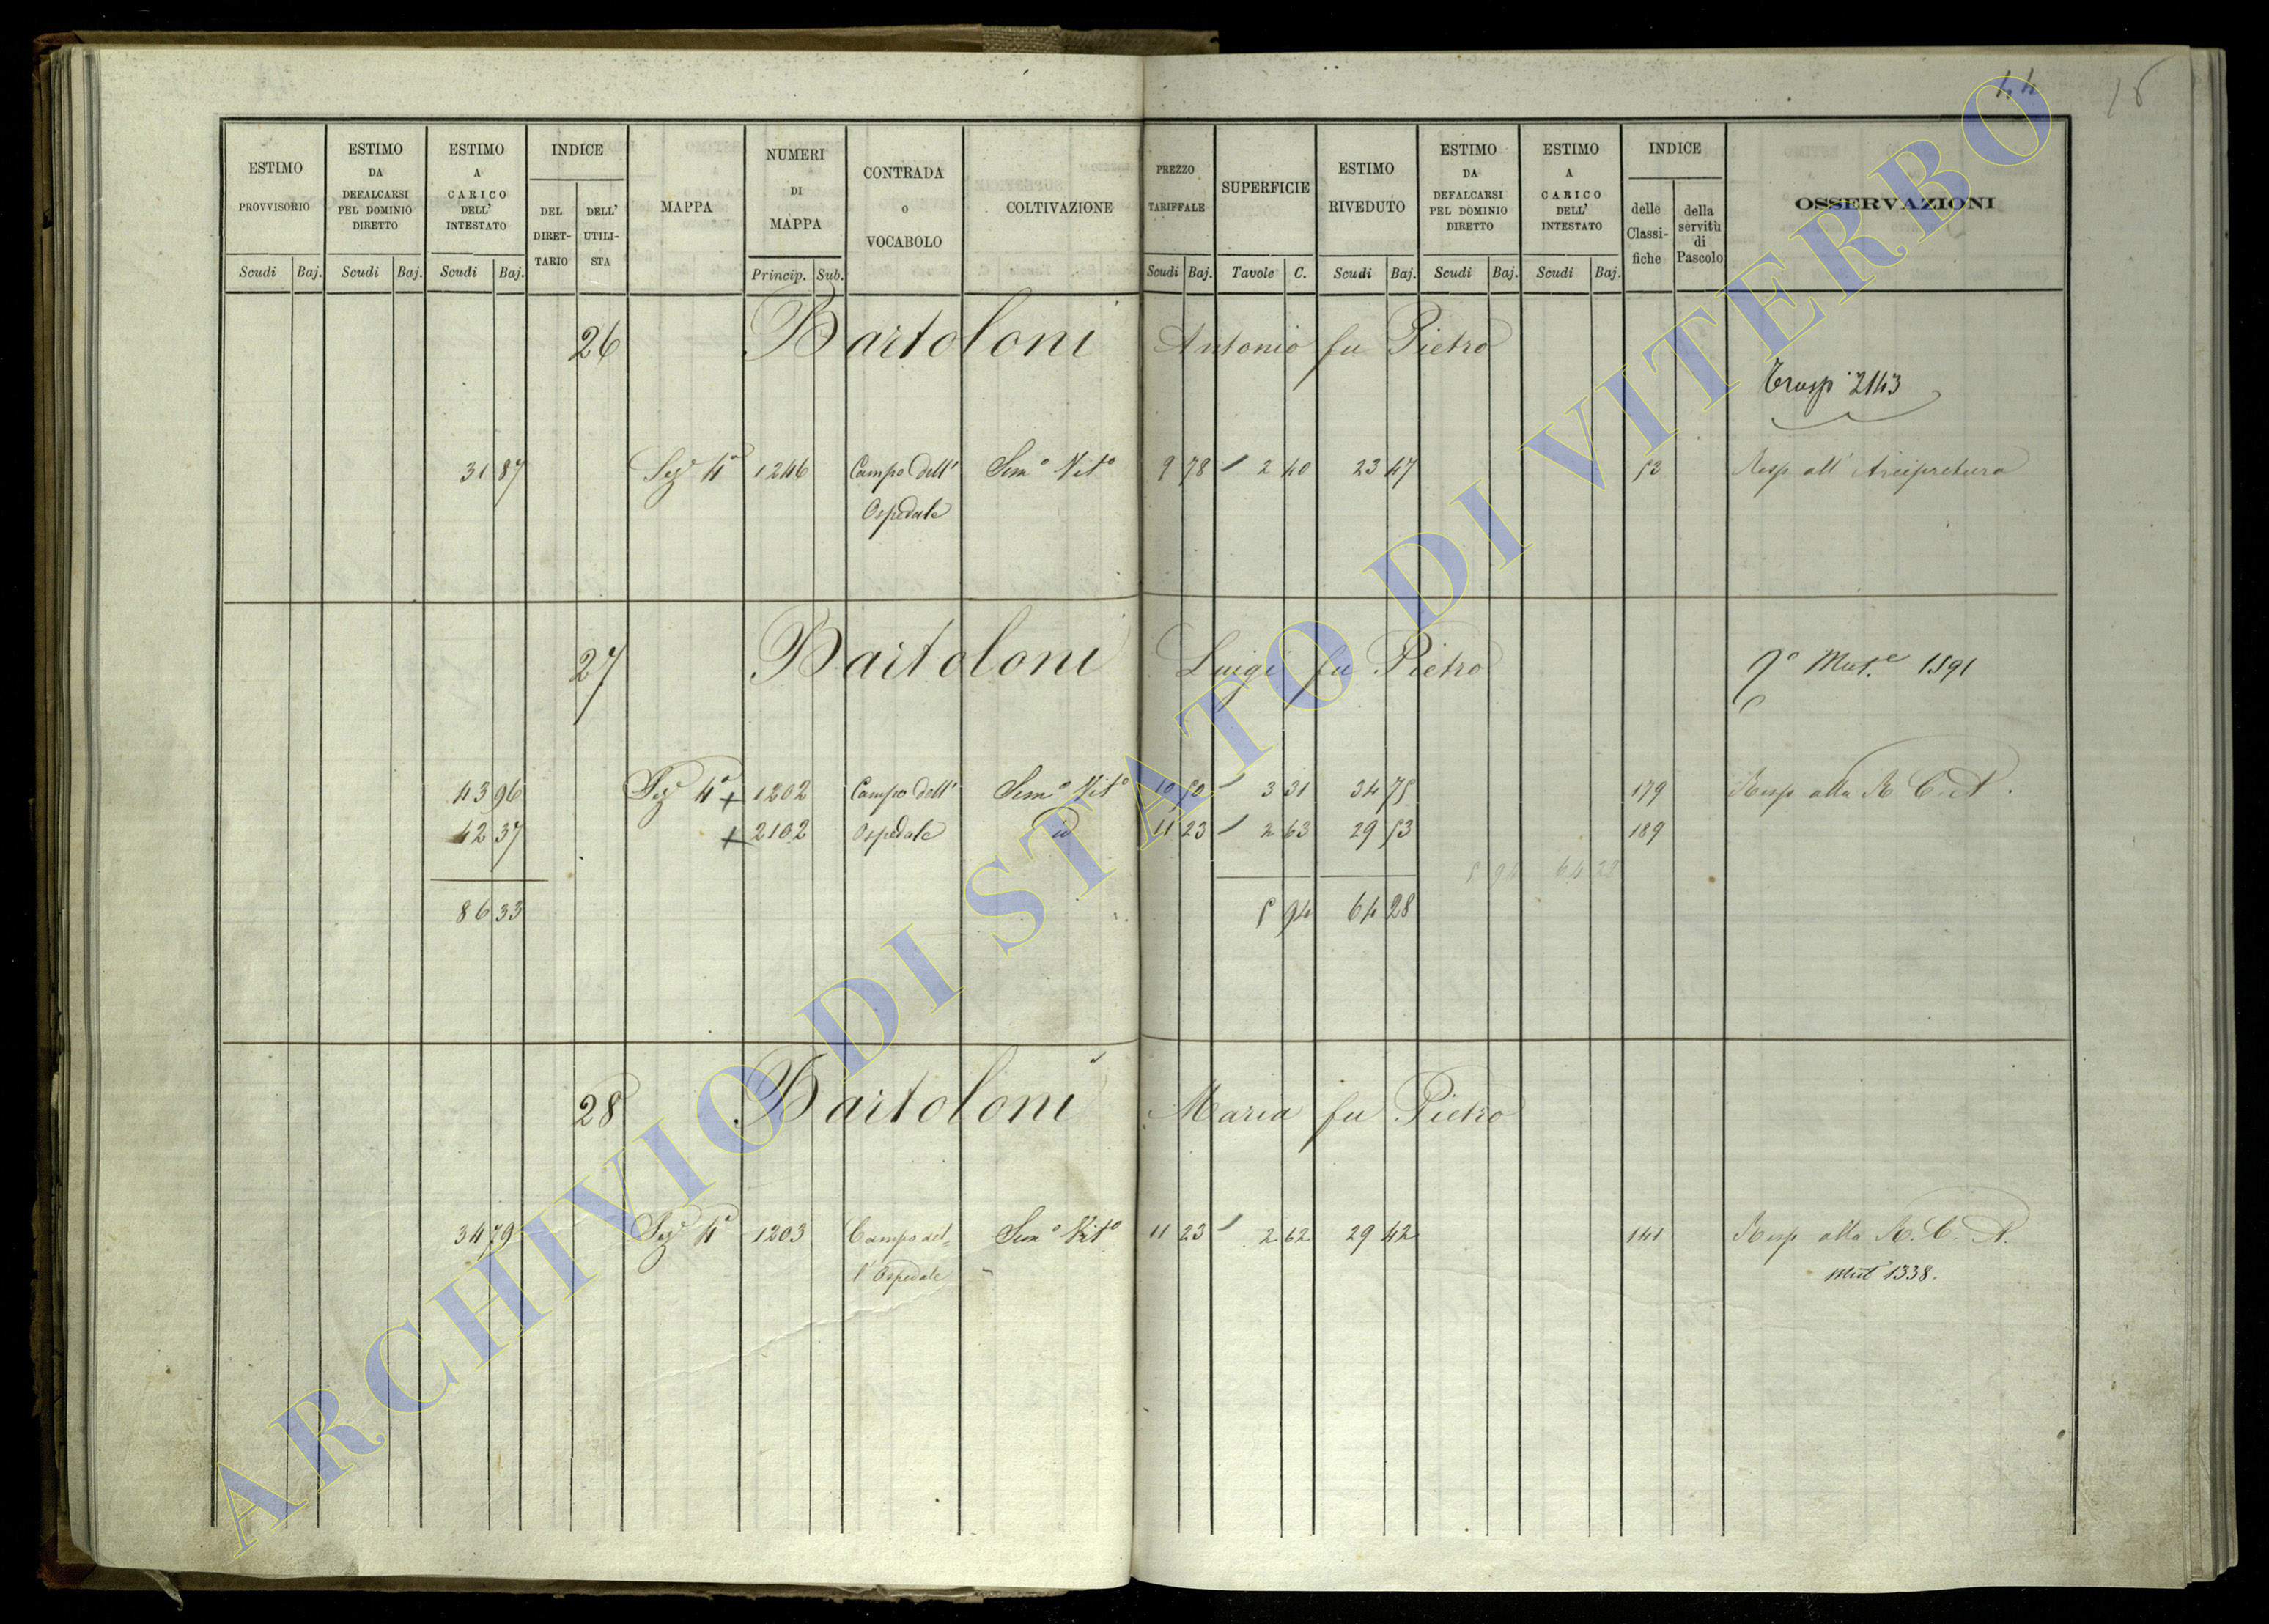 44 16
ESTIMO PROVVISORIO
ESTIMO DA DEFALCARSI PEL DOMINIO DIRETTO
ESTIMO A CARICO DELL' INTESTATO
INDICE
DEL DIRET-TARIO
DELL' UTILI-STA
MAPPA
NUMERI DI MAPPA
CONTRADA o VOCABOLO
COLTIVAZIONE
PREZZO TARIFFALE
SUPERFICIE
ESTIMO RIVEDUTO
ESTIMO DA DEFALCARSI PEL DOMINIO DIRETTO
ESTIMO A CARICO DELL' INTESTATO
INDICE
delle Classi-fiche
della servitù di Pascolo
OSSERVAZIONI
Scudi Baj. Scudi Baj. Scudi Baj. Princip. Sub. Scudi Baj. Tavole C. Scudi Baj. Scudi Baj. Scudi Baj.
26 Bartoloni Antonio fu Pietro
Trasp 2143
31 87 Sez 4a 1246 Campo dell' Semo Vito 9 78 2 40 23 47 52 Resp all' Arcipretura
Ospedale
27 Bartoloni Luigi fu Pietro Mut.e 1591
43 96 Sez 4a + 1202 Campo dell' Semo Vito 10 50 3 31 34 75 179 Resp alla R C. A.
42 37 + 2102 Ospedale id 11 23 2 63 29 53 189
5 94 64 28
86 33 5 94 64 28
28 Bartoloni Maria fu Pietro
34 79 Sez 4a 1203 Campo del= Semo Vito 11 23 2 62 29 42 141 Resp alla R. C. A.
l'Ospedale Mut 1338.
ARCHIVIO DI STATO DI VITERBO